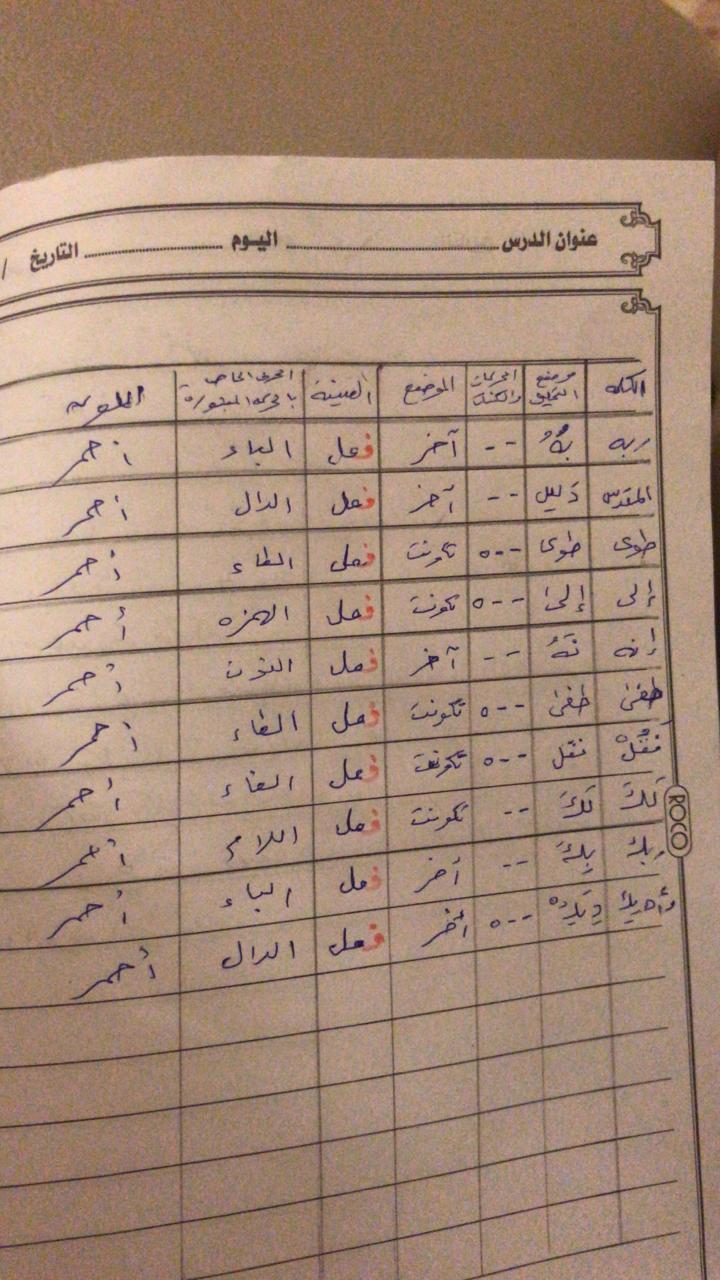 عنوان الدرس اليوم التاريخ /
الكلمة موضع التحقيق الحركات الموضع الصيغة الملون
ربه -- آخر فعل الباء أحمر
المقدس -- آخر فعل الدال أحمر
طوى طوى ---ه تكونت فعل الطاء أحمر
إلى إلى ---ه تكونت فعل الهمزه أحمر
إنه نَهُ -- آخر فعل النون أحمر
طغى طغى ---ه تكونت فعل الطاء أحمر
فَقُلْ فقل ---ه تكونت فعل الفاء أحمر
لَكَ لَكَ -- تكونت فعل اللام أحمر
ربك بِكَ -- آخر فعل الباء أحمر
وأهديك ---ه آخر فعل الدال أحمر
ROCO